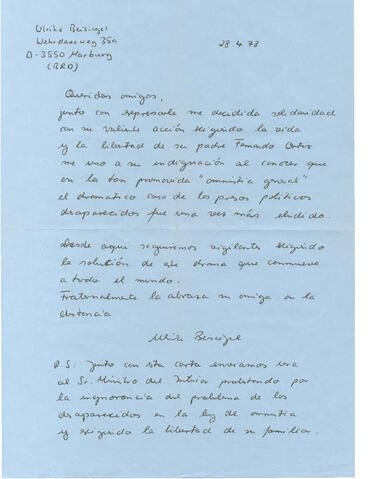 Ulrike Beisiegel
Wehrdaerweg 35a
D-3550 Marburg
(BRD)
28.4.78
Queridos amigos,
junto con expresarle me decidida solidaridad
con su valiente acción exigiendo la vida
y la libertad de su padre Fernando
me uno a su indignación al conocer que
en la tan promovida "amnistía general"
el dramático caso de los presos políticos
desaparecidos fue una vez más eludido.
Desde aquí seguiremos vigilantes exigiendo
la solución de este drama que conmueve
a todo el mundo.
Fraternalmente la abraza su amiga en la
distancia
Ulrike Beisiegel
P.S: Junto con esta carta enviamos una
al Sr. Ministro del Interior protestando por
la ingnorancia del problema de los
desaparecidos en la ley de amnistía
y exigiendo la libertad de su familiar.